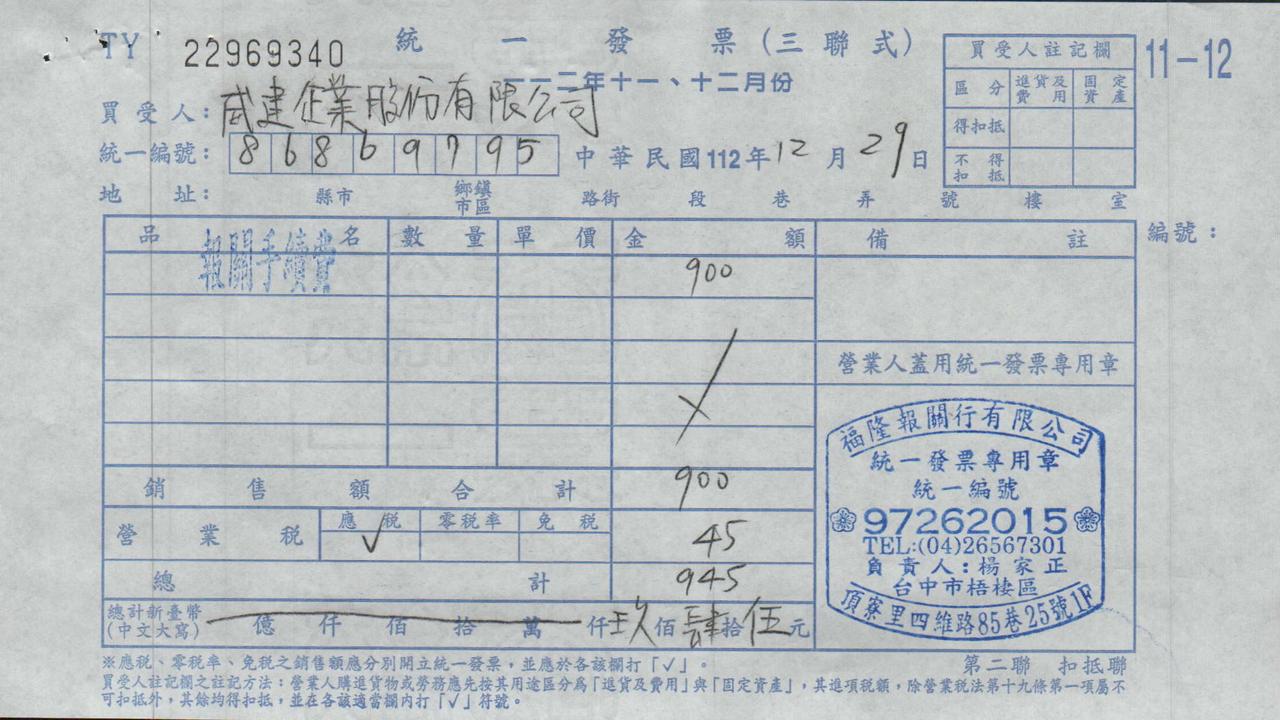 TY 22969340 統一發票(三聯式)
一一二年十一、十二月份
11-12
買受人註記欄
區分 進貨及費用 固定資產
得扣抵
不得扣抵
買受人: 威建企業股份有限公司
統一編號: 86869795 中華民國112年12月29日
地址: 縣市 鄉鎮市區 路街 段 巷 弄 號 樓 室
品名 數量 單價 金額 備註 編號:
報關手續費 900
營業人蓋用統一發票專用章
銷售額合計 900
營業稅 應稅 √ 零稅率 免稅 45
總計 945
總計新臺幣(中文大寫) 億 仟 佰 拾 萬 仟 玖 佰 肆 拾 伍 元
福隆報關行有限公司
統一發票專用章
統一編號
97262015
TEL:(04)26567301
負責人:楊家正
台中市梧棲區
頂寮里四維路85巷25號1F
※應稅、零稅率、免稅之銷售額應分別開立統一發票,並應於各該欄打「√」。
第二聯 扣抵聯
買受人註記欄之註記方法:營業人購進貨物或勞務應先按其用途區分為「進貨及費用」與「固定資產」,其進項稅額,除營業稅法第十九條第一項屬不
可扣抵外,其餘均得扣抵,並在各該適當欄內打「√」符號。